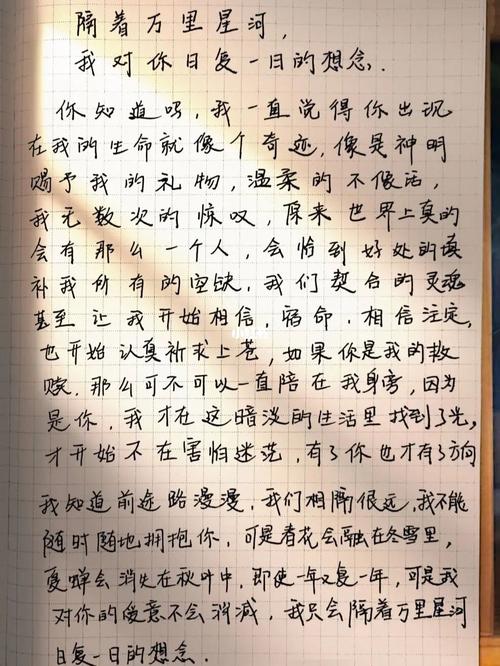 隔着万里星河，
我对你日复一日的想念.
你知道吗，我一直觉得你出现
在我的生命就像个奇迹，像是神明
赐予我的礼物，温柔的不像话，
我无数次的惊叹，原来世界上真的
会有那么一个人，会恰到好处的填
补我所有的空缺，我们契合的灵魂
甚至让我开始相信，宿命，相信注定，
也开始认真祈求上苍，如果你是我的救
赎，那么可不可以一直陪在我身旁，因为
是你，我才在这暗淡的生活里找到了光，
才开始不在害怕迷茫，有了你也才有了方向
我知道前途路漫漫，我们相隔很远，我不能
随时随地拥抱你，可是春花会融在冬雪里，
夏蝉会消失在秋叶中，即使一年又复一年，可是我
对你的爱意不会消减，我只会隔着万里星河
日复一日的想念.